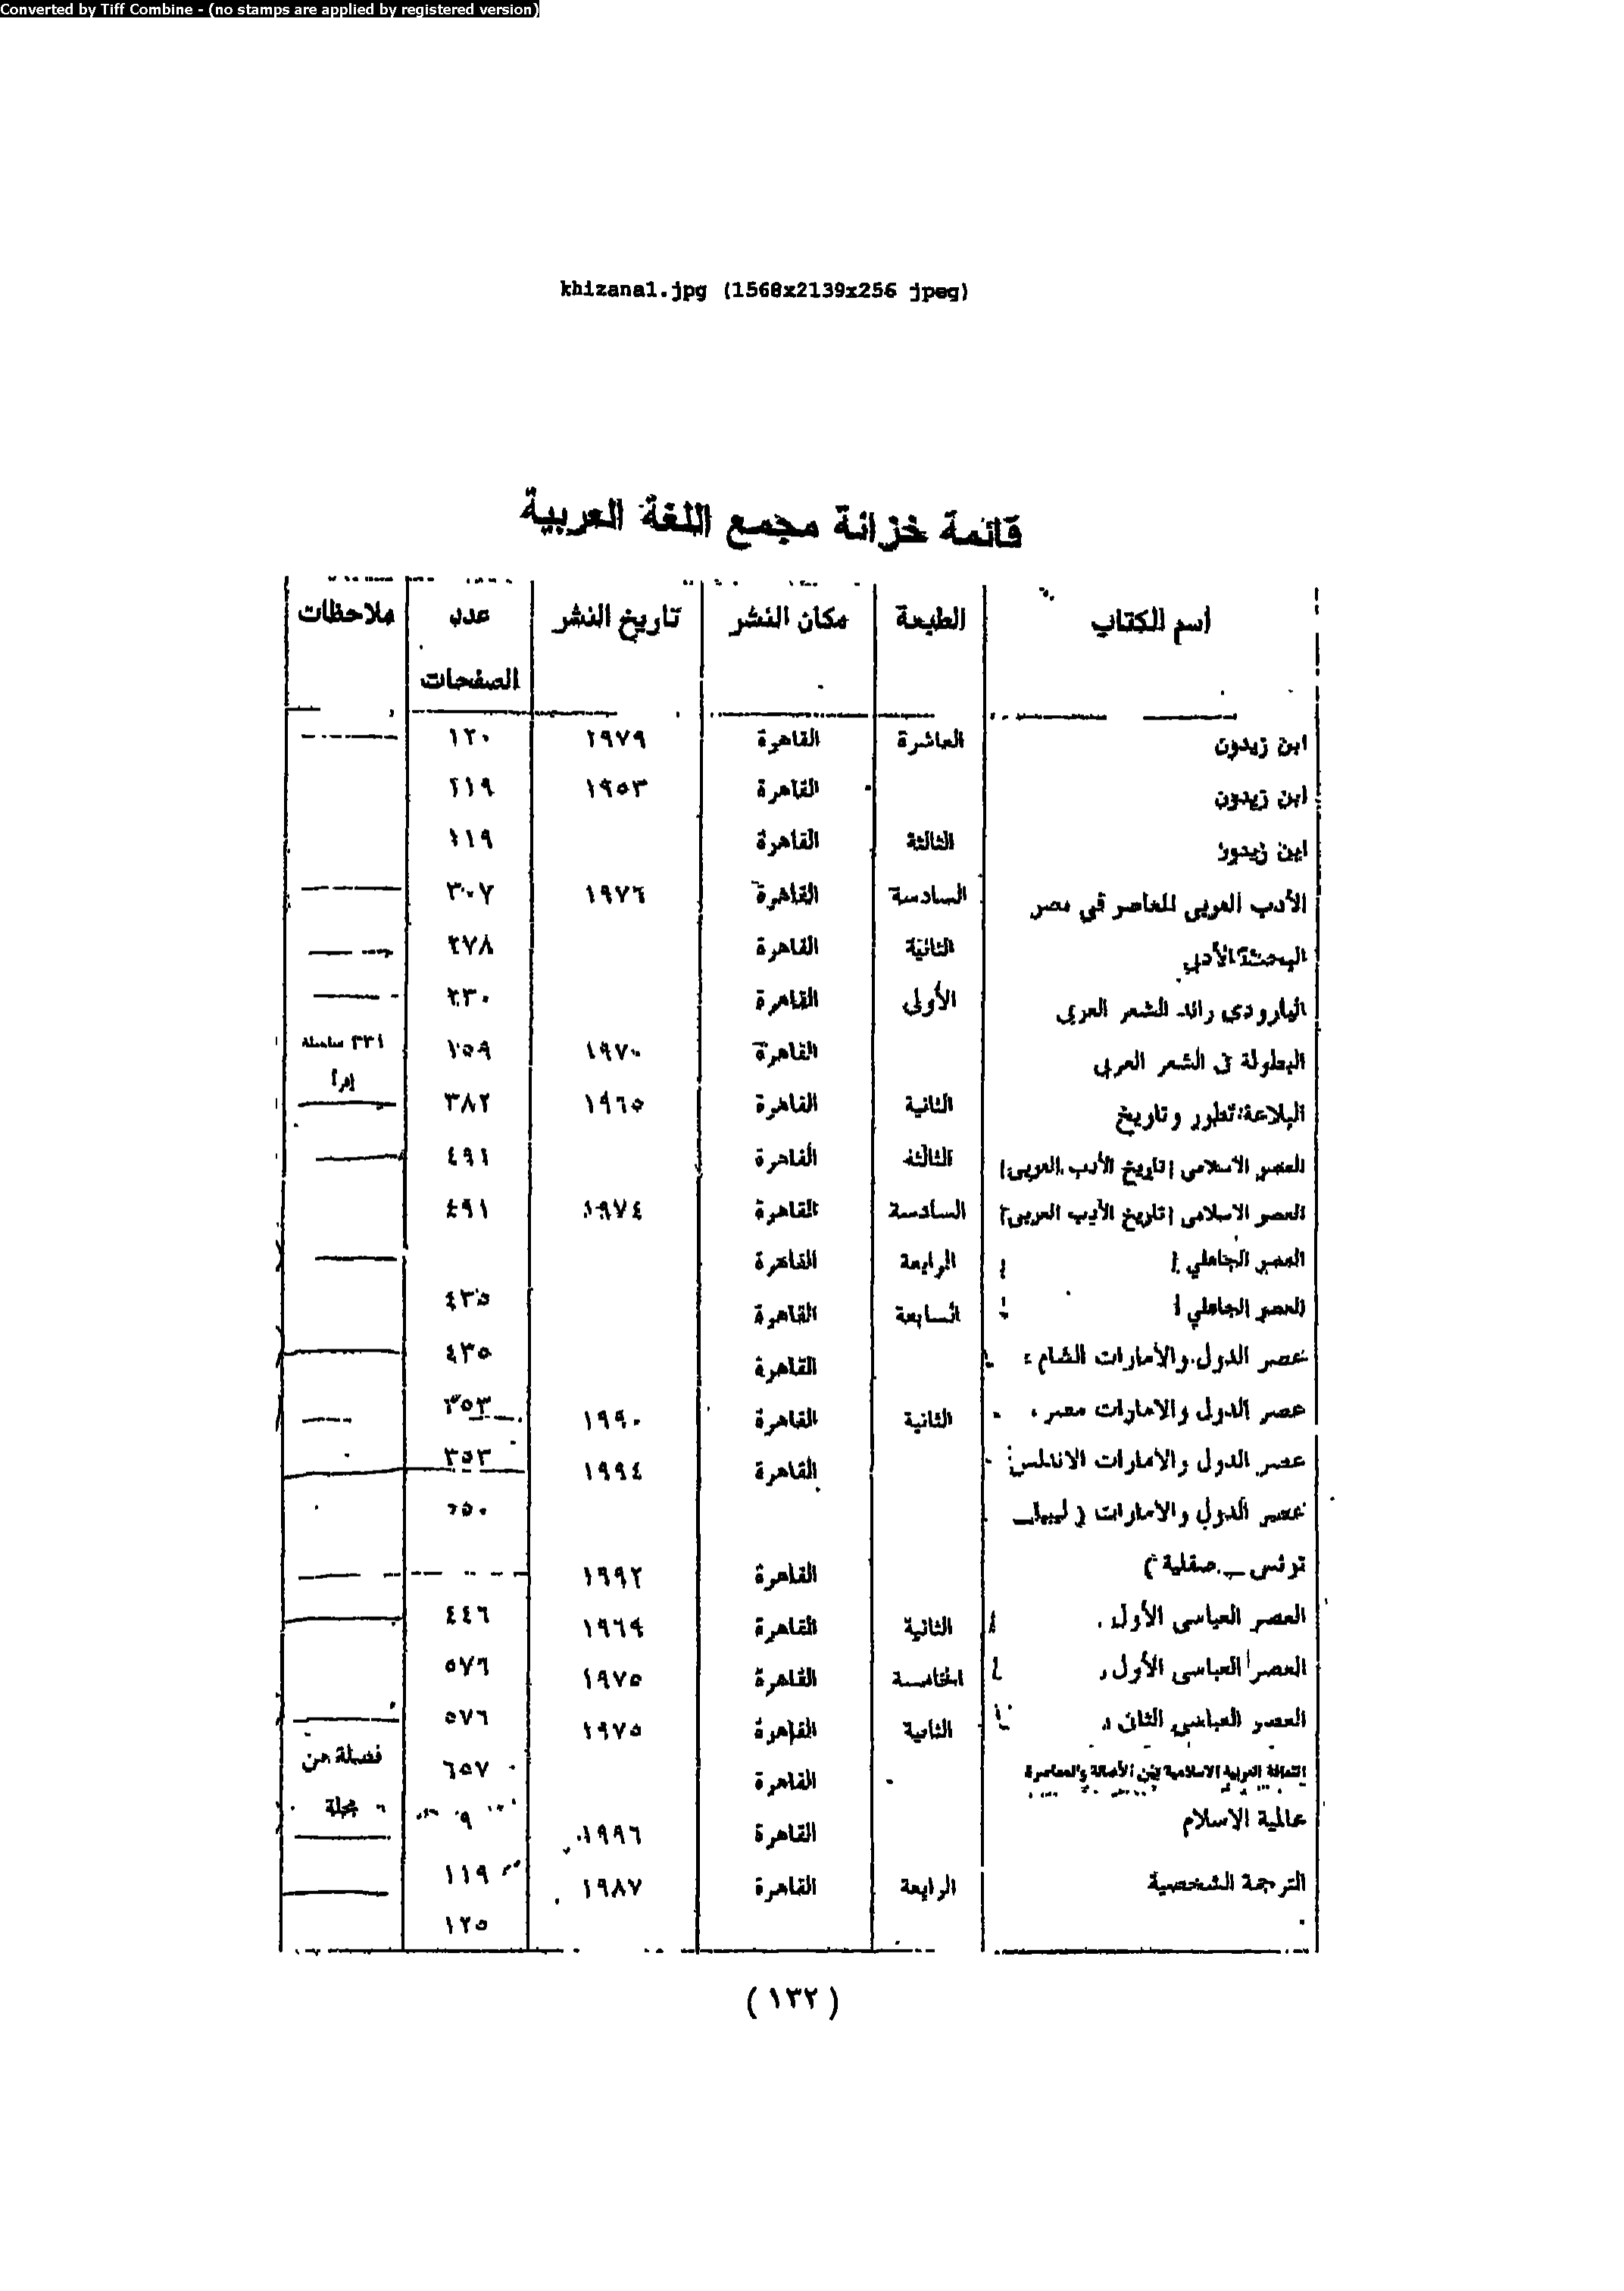 Converted by Tiff Combine - (no stamps are applied by registered version)
khizana1.jpg (1568x2139x256 jpeg)
قائمة خزانة مجمع اللغة العربية
اسم الكتاب الطبعة مكان النشر تاريخ النشر عدد الصفحات ملاحظات
ابن زيدون العاشرة القاهرة ١٩٧٩ ١٢٠
ابن زيدون القاهرة ١٩٥٣ ١١٩
ابن زيدون الثالثة القاهرة ١١٩
الأدب العربى المعاصر في مصر السادسة القاهرة ١٩٧٦ ٣٠٧
البحث الأدبي الثانية القاهرة ٢٧٨
البارودى رائد الشعر العربي الأولى القاهرة ٢٣٠
البطولة في الشعر العربي القاهرة ١٩٧٠ ١٥٩ ٣٣١ سلسلة
إقرأ
البلاغة تطور وتاريخ الثانية القاهرة ١٩٦٥ ٣٨٢
العصر الاسلامى (تاريخ الأدب العربى) الثالثة القاهرة ٤٩١
العصر الاسلامى (تاريخ الأدب العربى) السادسة القاهرة ١٩٧٤ ٤٩١
العصر الجاهلي الرابعة القاهرة
العصر الجاهلي السابعة القاهرة ٤٣٥
عصر الدول والأمارات الشام القاهرة ٤٣٥
عصر الدول والامارات مصر الثانية القاهرة ١٩٩٠ ٣٥٣
عصر الدول والأمارات الاندلس القاهرة ١٩٩٤ ٣٥٣
عصر الدول والأمارات ( ليبيا ـ ٥٥٠
تونس ـ صقلية ) القاهرة ١٩٩٢
العصر العباسى الأول الثانية القاهرة ١٩٦٩ ٤٤٦
العصر العباسى الأول الخامسة القاهرة ١٩٧٥ ٥٧٦
العصر العباسى الثانى الثانية القاهرة ١٩٧٥ ٥٧٦
الثقافة العربية الاسلامية بين الأصالة والمعاصرة القاهرة ٦٥٧ فصلة من
مجلة
عالمية الاسلام القاهرة ١٩٩٦ ٩
الترجمة الشخصية الرابعة القاهرة ١٩٨٧ ١١٩
١٢٥
( ١٣٢ )